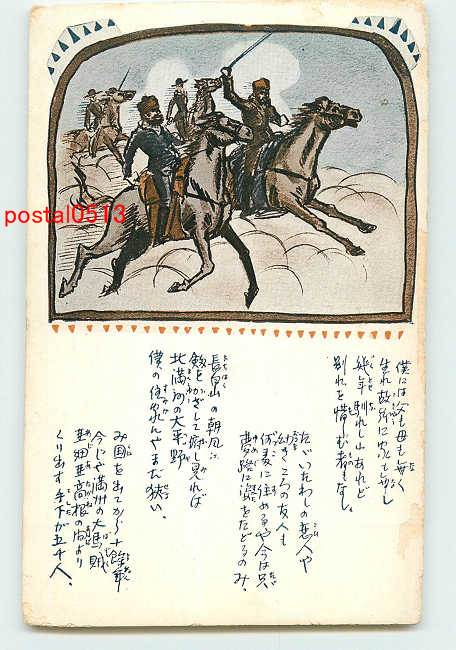 postal0513
僕には父も母も無く
生れ故郷に家も無し
幾年馴れし山あれど
別れを惜む者もなし
たゞいたわしの恋人や
幼きころの友人も
何処に住めるや今は只
夢路に姿をたどるのみ、
長白山の朝風に
剣をかざして俯し見れば
北満州の大平野
僕の住家にやまだ狭い、
み国を出てから十余年
今じや満州の大馬賊
亜細亜高根の間より
くり出す手下が五千人、